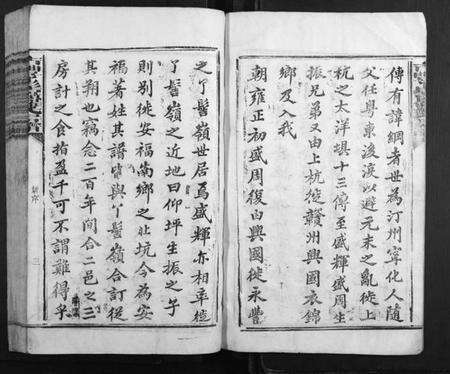 傳有諱綱者世為汀州寧化人隨
父任粵東後淚以避元末之亂徙上
杭之大洋垻十三傳至盛輝盛周生
振兄弟又由上杭徙贛州興國衣錦
鄉及入我
朝雍正初盛周復由興國徙永豐
之丫髻嶺世居焉盛輝亦相率徙
丫髻嶺之近地曰仰坪生振之子
則別徙安福嵩鄉之北坑今為安
福著姓其譜皆與丫髻嶺合訂從
其朔也竊念二百年間合二邑之三
房計之食指盈千可不謂難得乎
新序
三